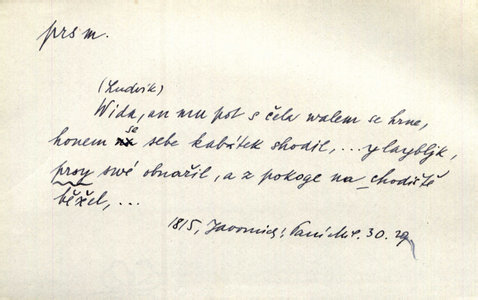 prs m.
(Ludvík)
Wida, an mu pot s čela walem se hrne,
honem se sebe kabátek shodil, ... y laybljk,
prsy swé obnažil, a z pokoge na chodiště
běžel, ...
1815, 30. 29